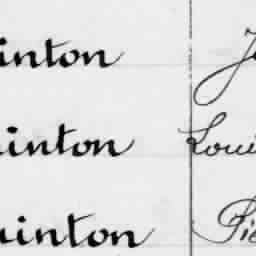 inton J
inton Loui
uinton Pie